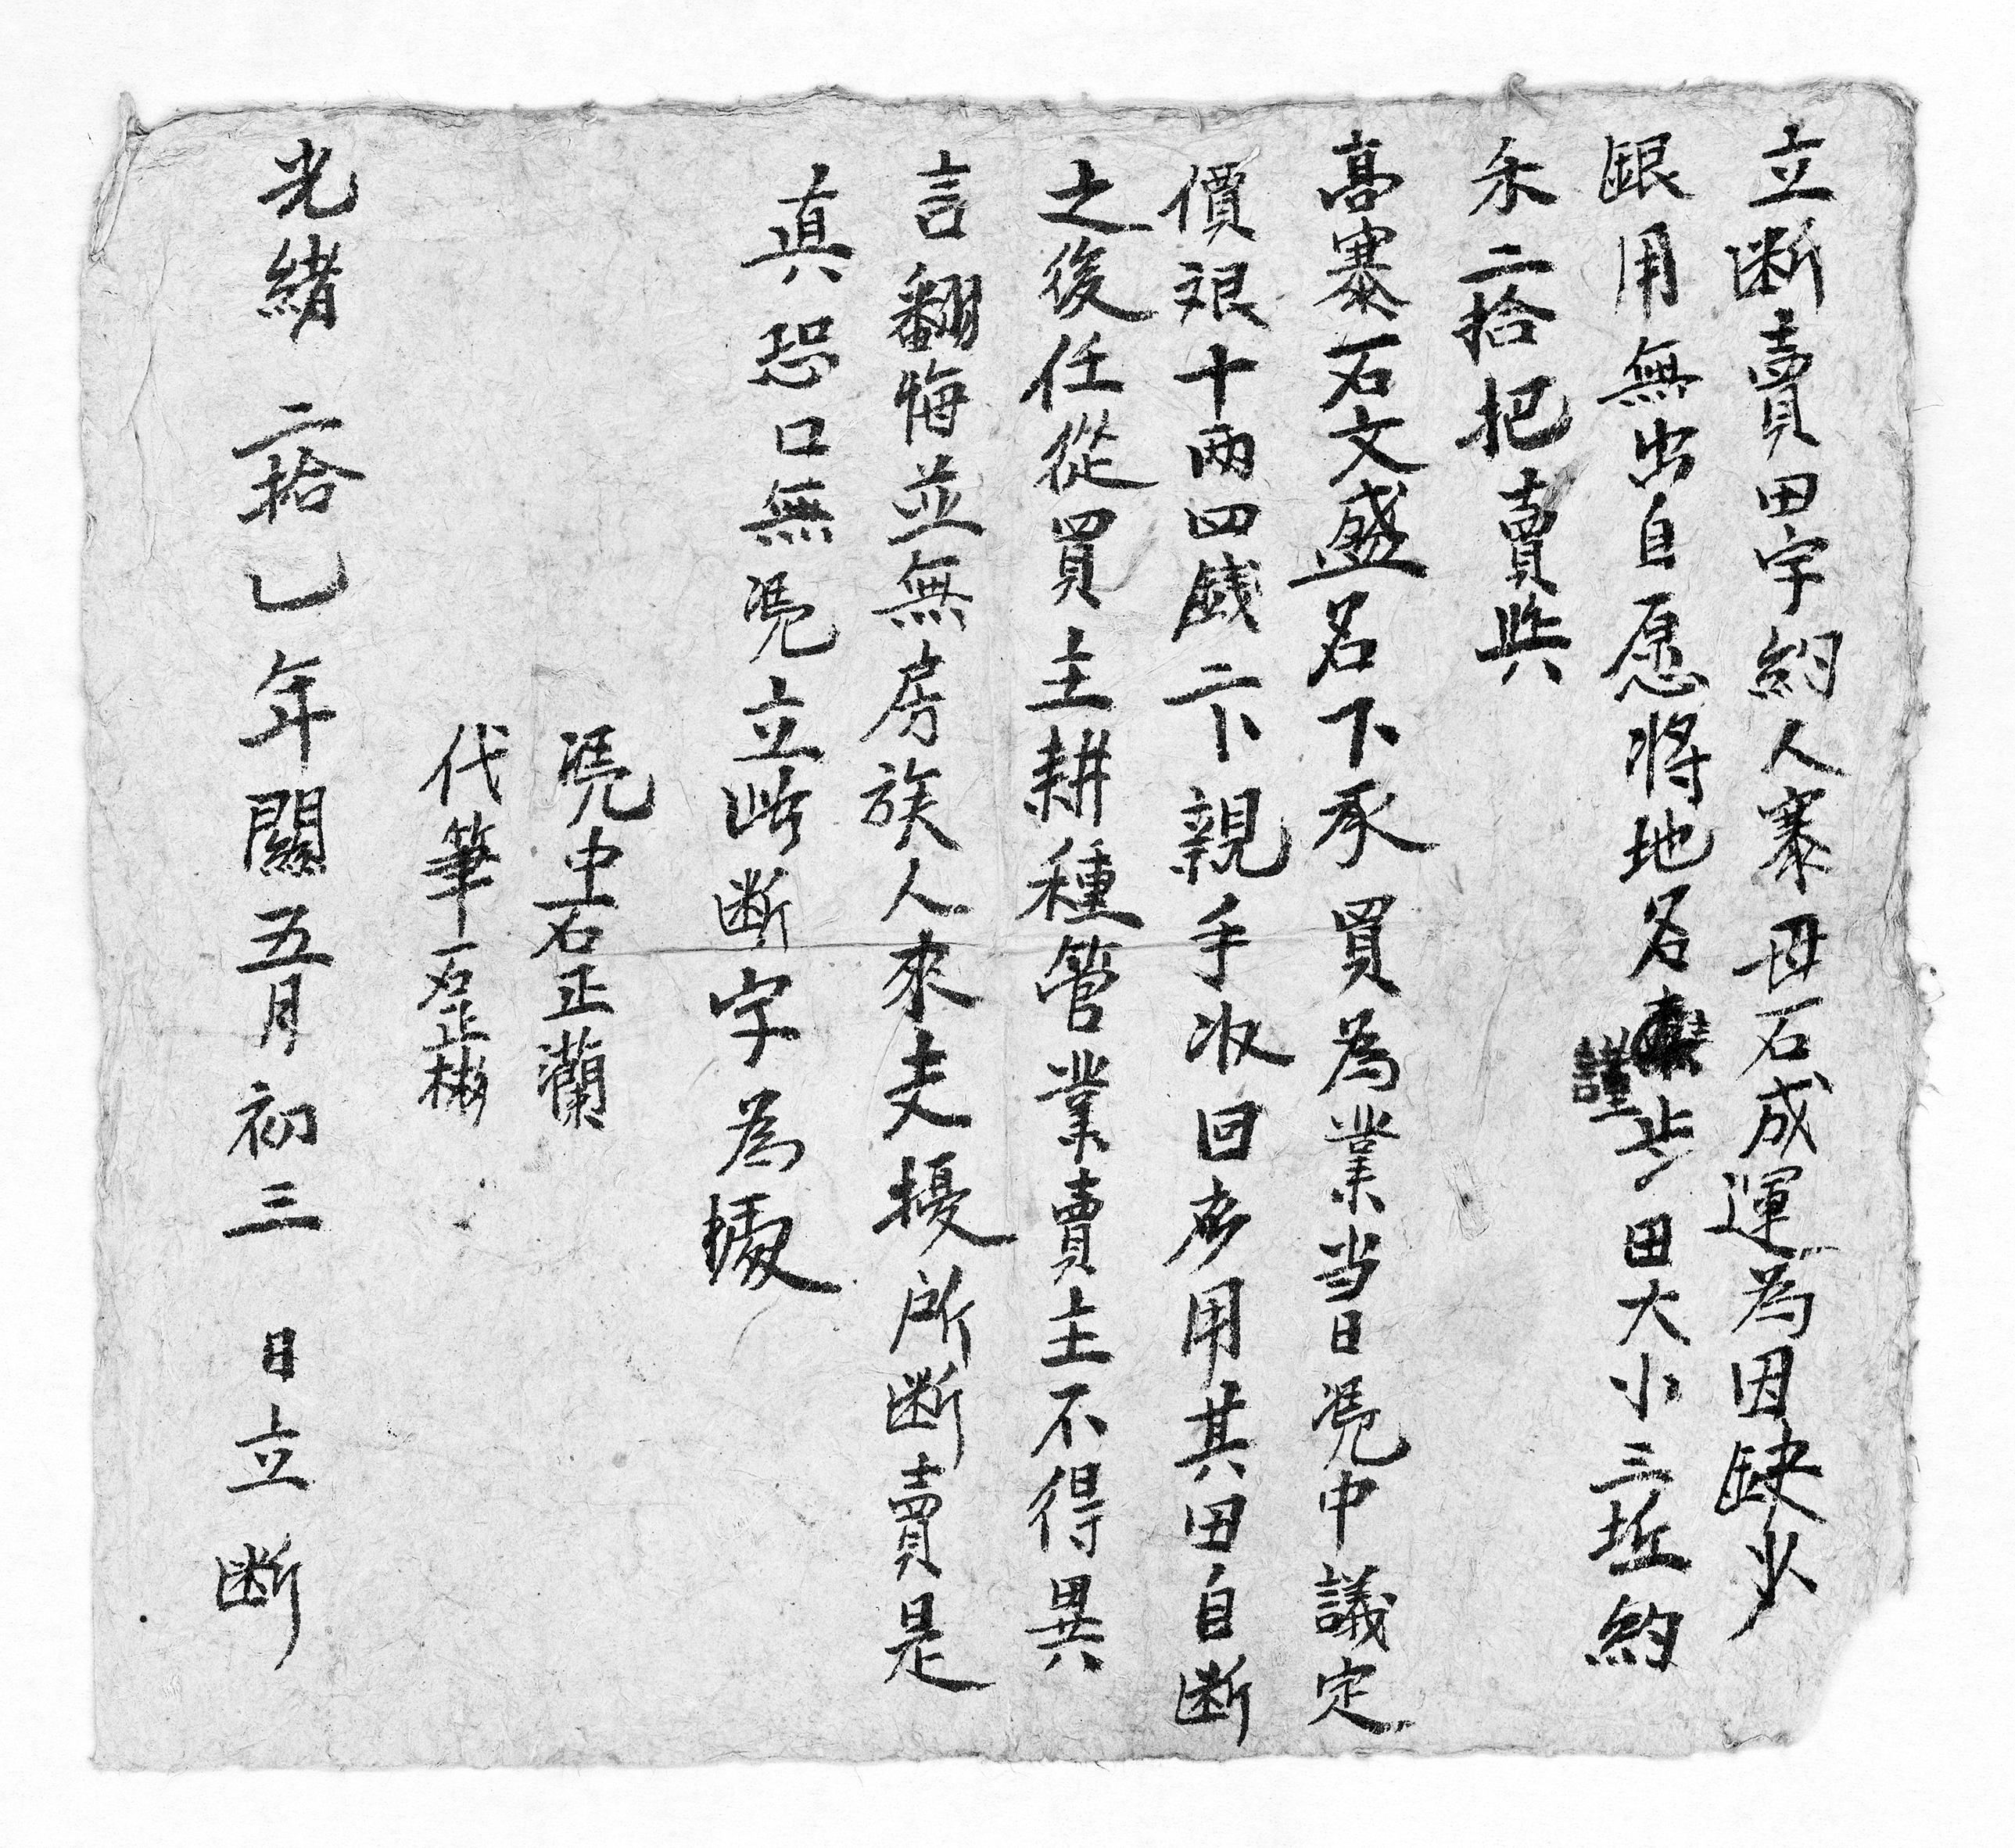 立断賣田字約人寨母石成運為因缺少
銀用無出自愿將地名謹步田大小三坵約
禾二拾把賣與
高寨石文盛名下承買為業当日凴中議定
價艮十両四戔二卜親手收回応用其田自断
之後任從買主耕種管業賣主不得異
言翻悔並無房族人來走擾所断賣是
真恐口無凴立此断字為據
凴中石正蘭
代筆石正彬
光緒二拾乙年閏五月初三日立断